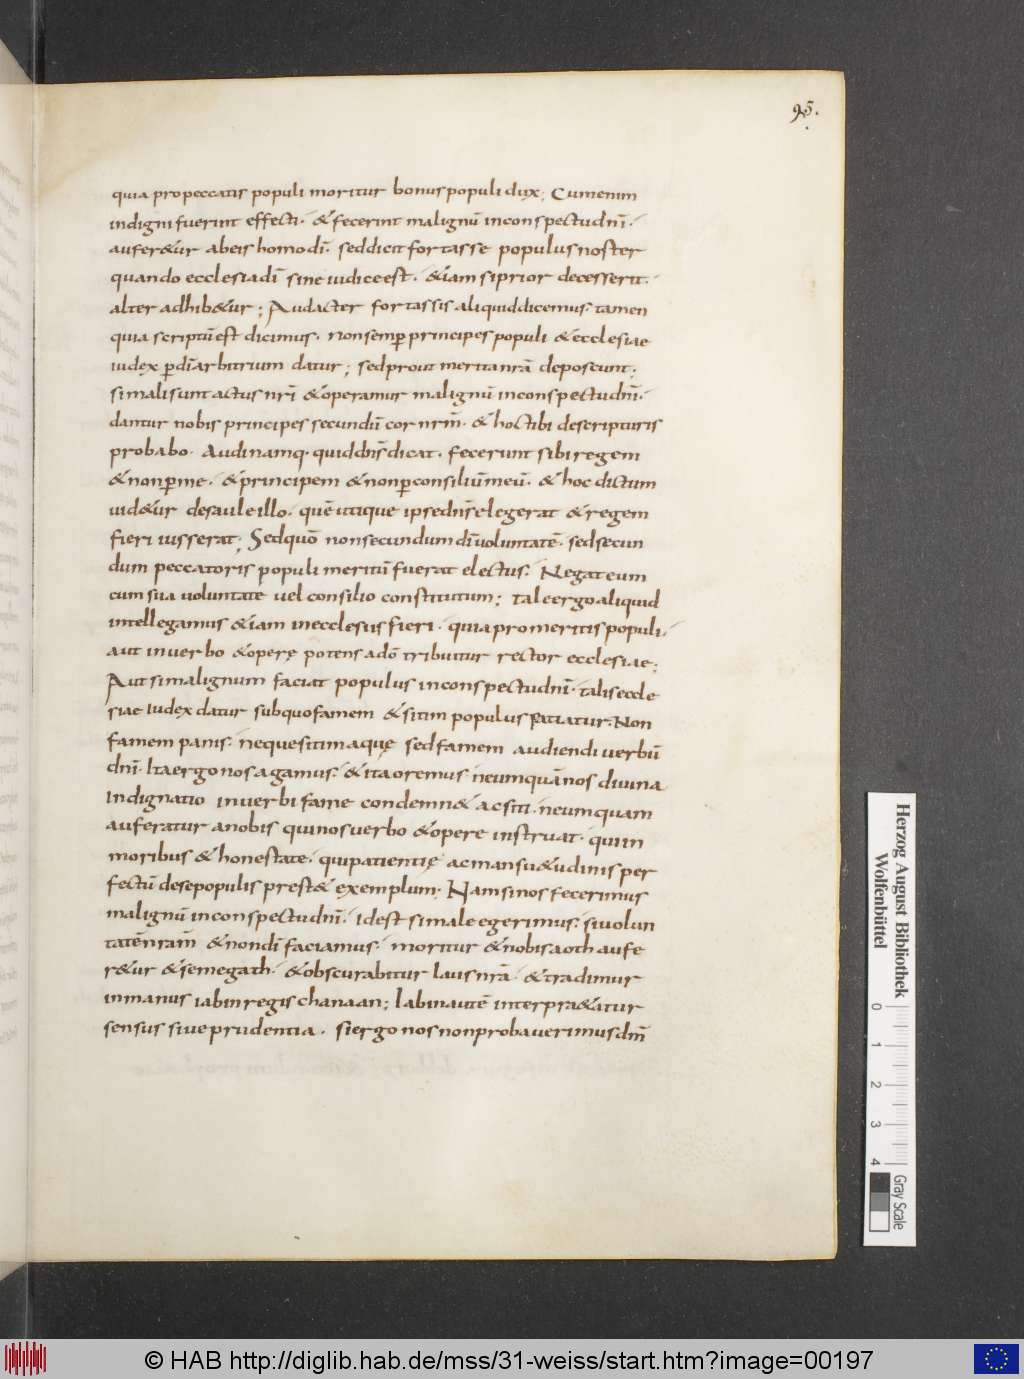 95.
quia propeccatis populi moritur bonus populi dux; Cumenim
indigni fuerint effecti · & fecerint malignū inconspectu dnī ·
aufer&ur abeis homo dī · sed dicit fortasse populus noster
quando ecclesia dī sine iudice est · &iam si prior decesserit ·
alter adhib&ur; Audacter fortassis aliquid dicemus · tamen
quia scriptū est dicimus · non semꝑ principes populi & ecclesiae
iudex ꝑ dī arbitrium datur; sed prout merita nrā deposcunt;
si mali sunt actus nrī & operamur malignū inconspectu dnī ·
dantur nobis principes secundū cor nrm̄ · & hoc tibi de scripturis
probabo · Audi namq· quid dn̄s dicat · fecerunt sibi regem
& non ꝑ me · & principem & non ꝑ consiliū meū · & hoc dictum
uid&ur de saule illo · quē utique ipse dn̄s elegerat & regem
fieri iusserat; Sed quō non secundum dī uoluntatē · sed secun
dum peccatoris populi meritū fuerat electus · Negat eum
cum sua uoluntate uel consilio constitutum; Tale ergo aliquid
intellegamus &iam in ecclesiis fieri · quia pro meritis populi ·
aut in uerbo & operę potens adō tribuitur rector ecclesiae;
Aut si malignum faciat populus inconspectu dnī · talis eccle
siae iudex datur sub quo famem & sitim populus patiatur · Non
famem panis · neque sitim aquę sed famem audiendi uerbū
dnī · Ita ergo nos agamus · & ita oremus ne umquā nos diuina
Indignatio in uerbi fame condemn& ac siti · ne umquam
auferatur a nobis qui nos uerbo & opere instruat · qui in
moribus & honestate · qui patientię ac mansu&udinis per
fectū de se populis prest& exemplum · Nam si nos fecerimus
malignū inconspectu dnī · Id est si male egerimus · si uolun
tatē nram̄ & non dī faciamus · moritur & nobis aoth aufe
r&ur & semegath · & obscurabitur laus nrā · & tradimur
in manus iabin regis chanaan; Iabin autē interpra&atur
sensus siue prudentia · si ergo nos non probauerimus dm̄
Herzog August Bibliothek
Wolfenbüttel
0 1 2 3 4
Gray Scale
© HAB http://diglib.hab.de/mss/31-weiss/start.htm?image=00197